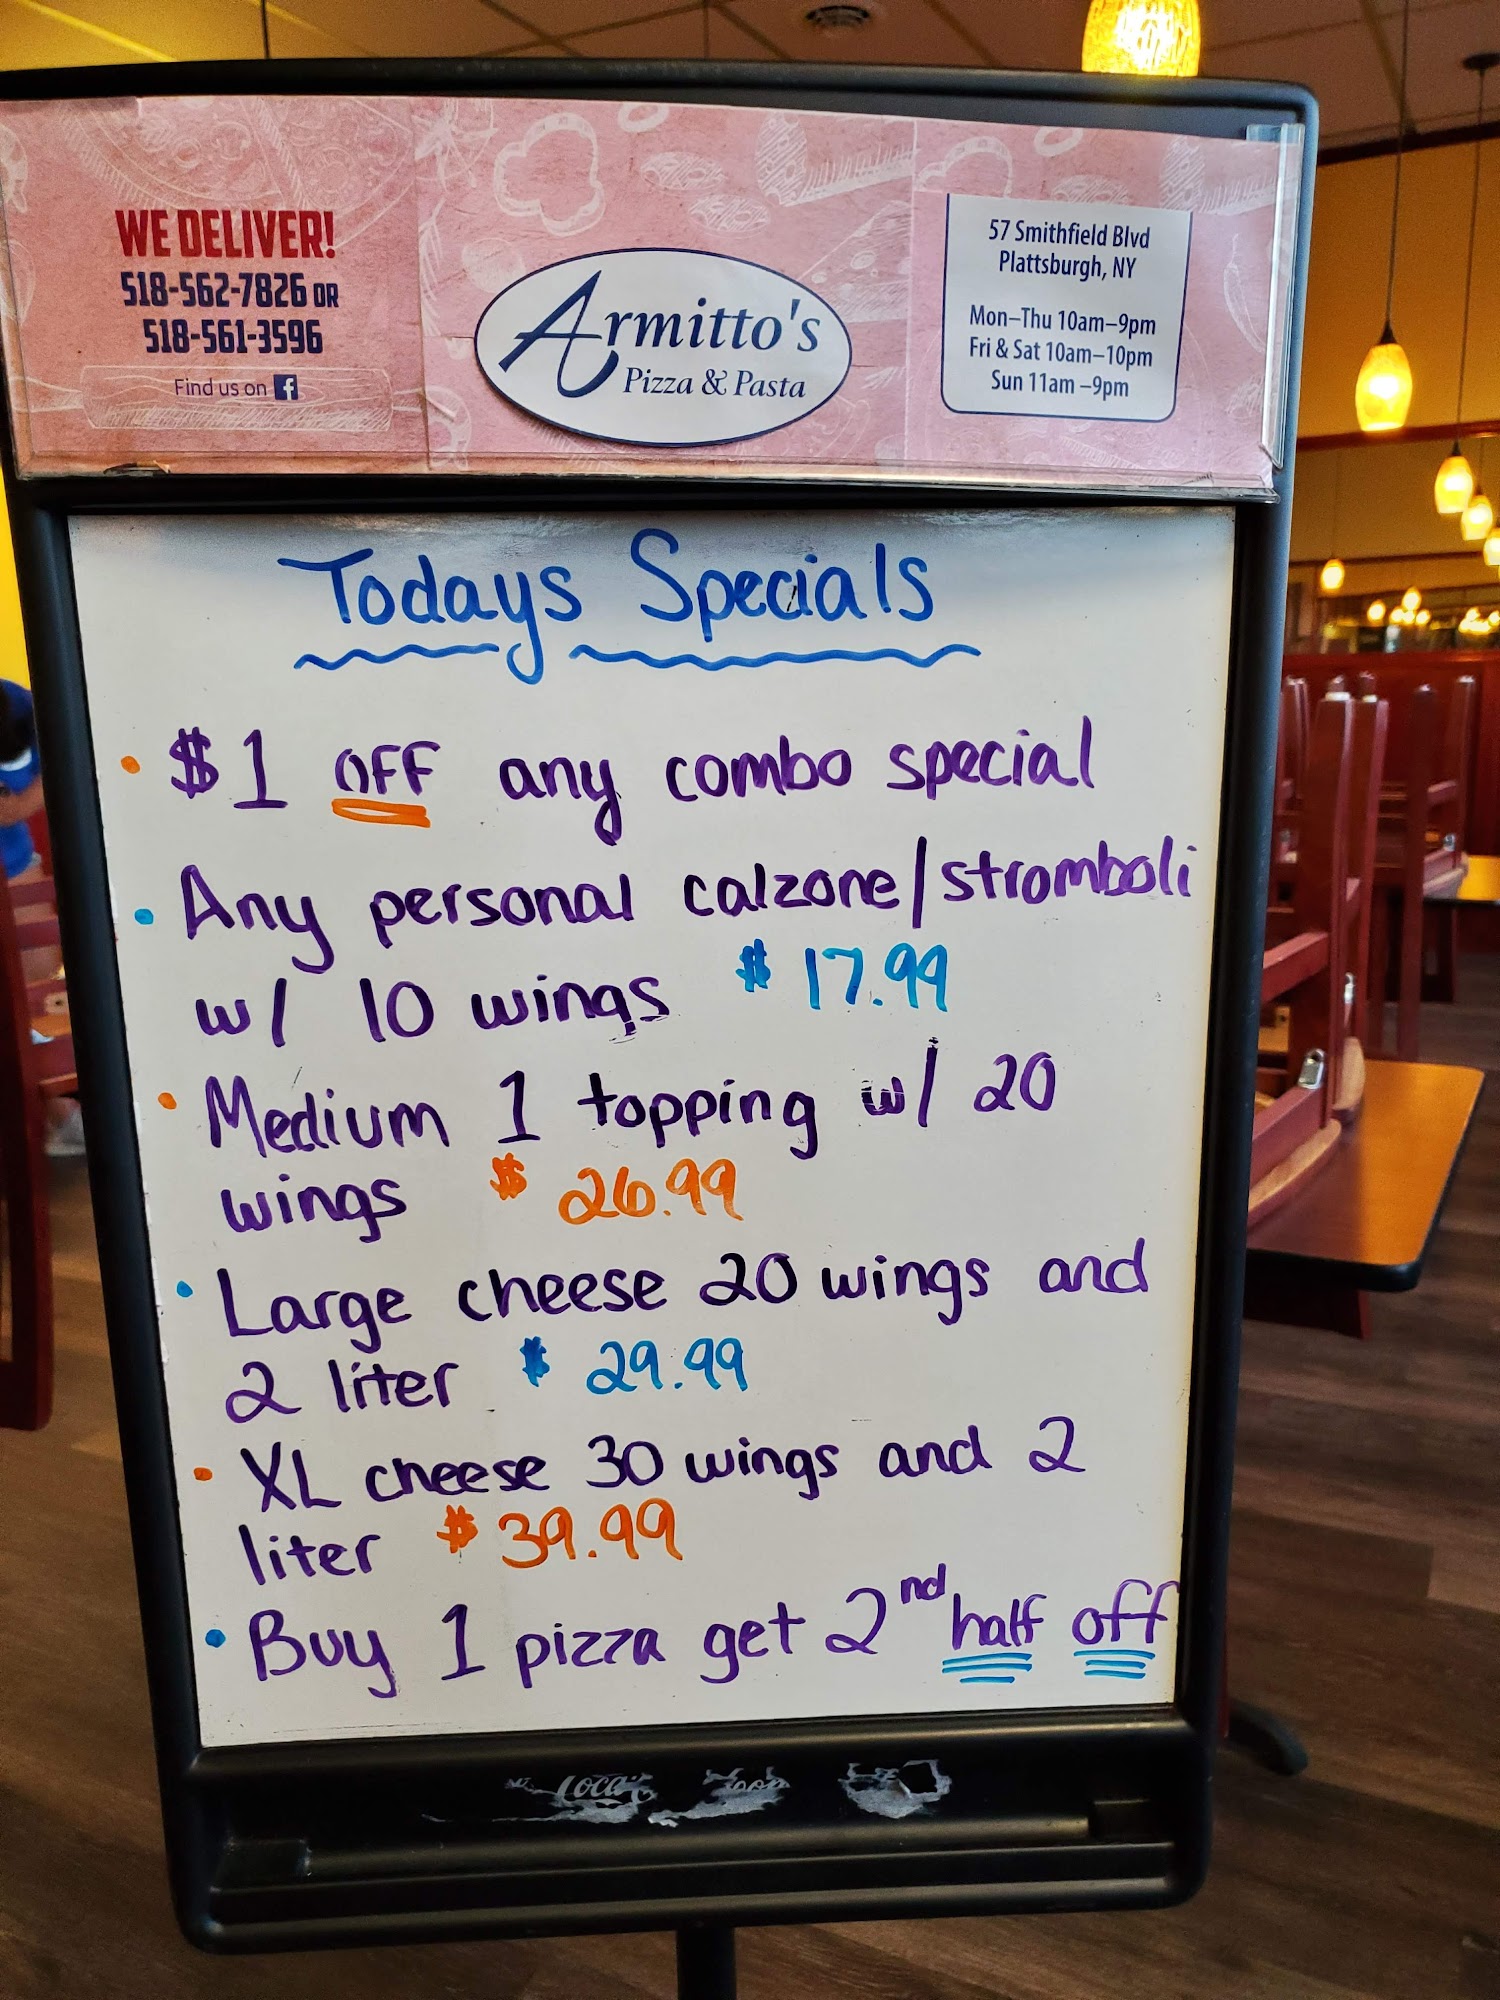 WE DELIVER!
518-562-7826 OR
518-561-3596
Find us on f
Armitto's
Pizza & Pasta
57 Smithfield Blvd
Plattsburgh, NY
Mon–Thu 10am–9pm
Fri & Sat 10am–10pm
Sun 11am –9pm
Todays Specials
• $1 OFF any combo special
• Any personal calzone/stromboli
w/ 10 wings $ 17.99
• Medium 1 topping w/ 20
wings $ 26.99
• Large cheese 20 wings and
2 liter $ 29.99
• XL cheese 30 wings and 2
liter $ 39.99
• Buy 1 pizza get 2nd half off